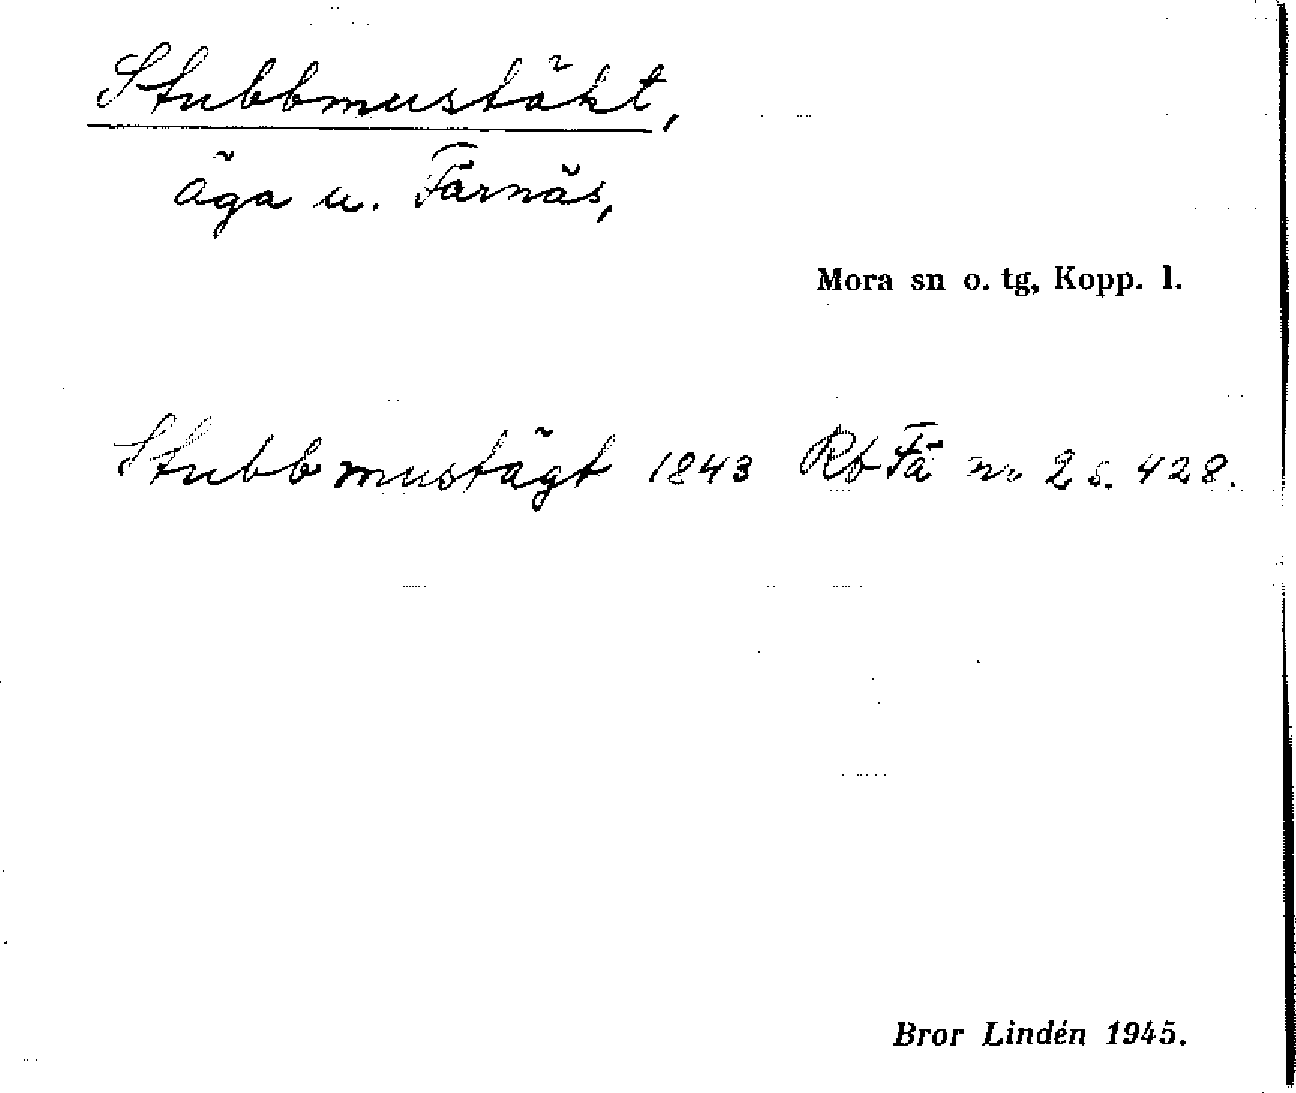 Stubbmustäkt,
äga u. Färnäs,
Mora sn o. tg, Kopp. l.
Stubbmustägt 1843 Rb Fä nr 2 s. 428.
Bror Lindén 1945.